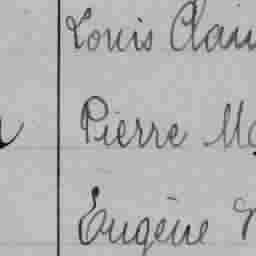 Louis Clau
Pierre Ma
Eugène